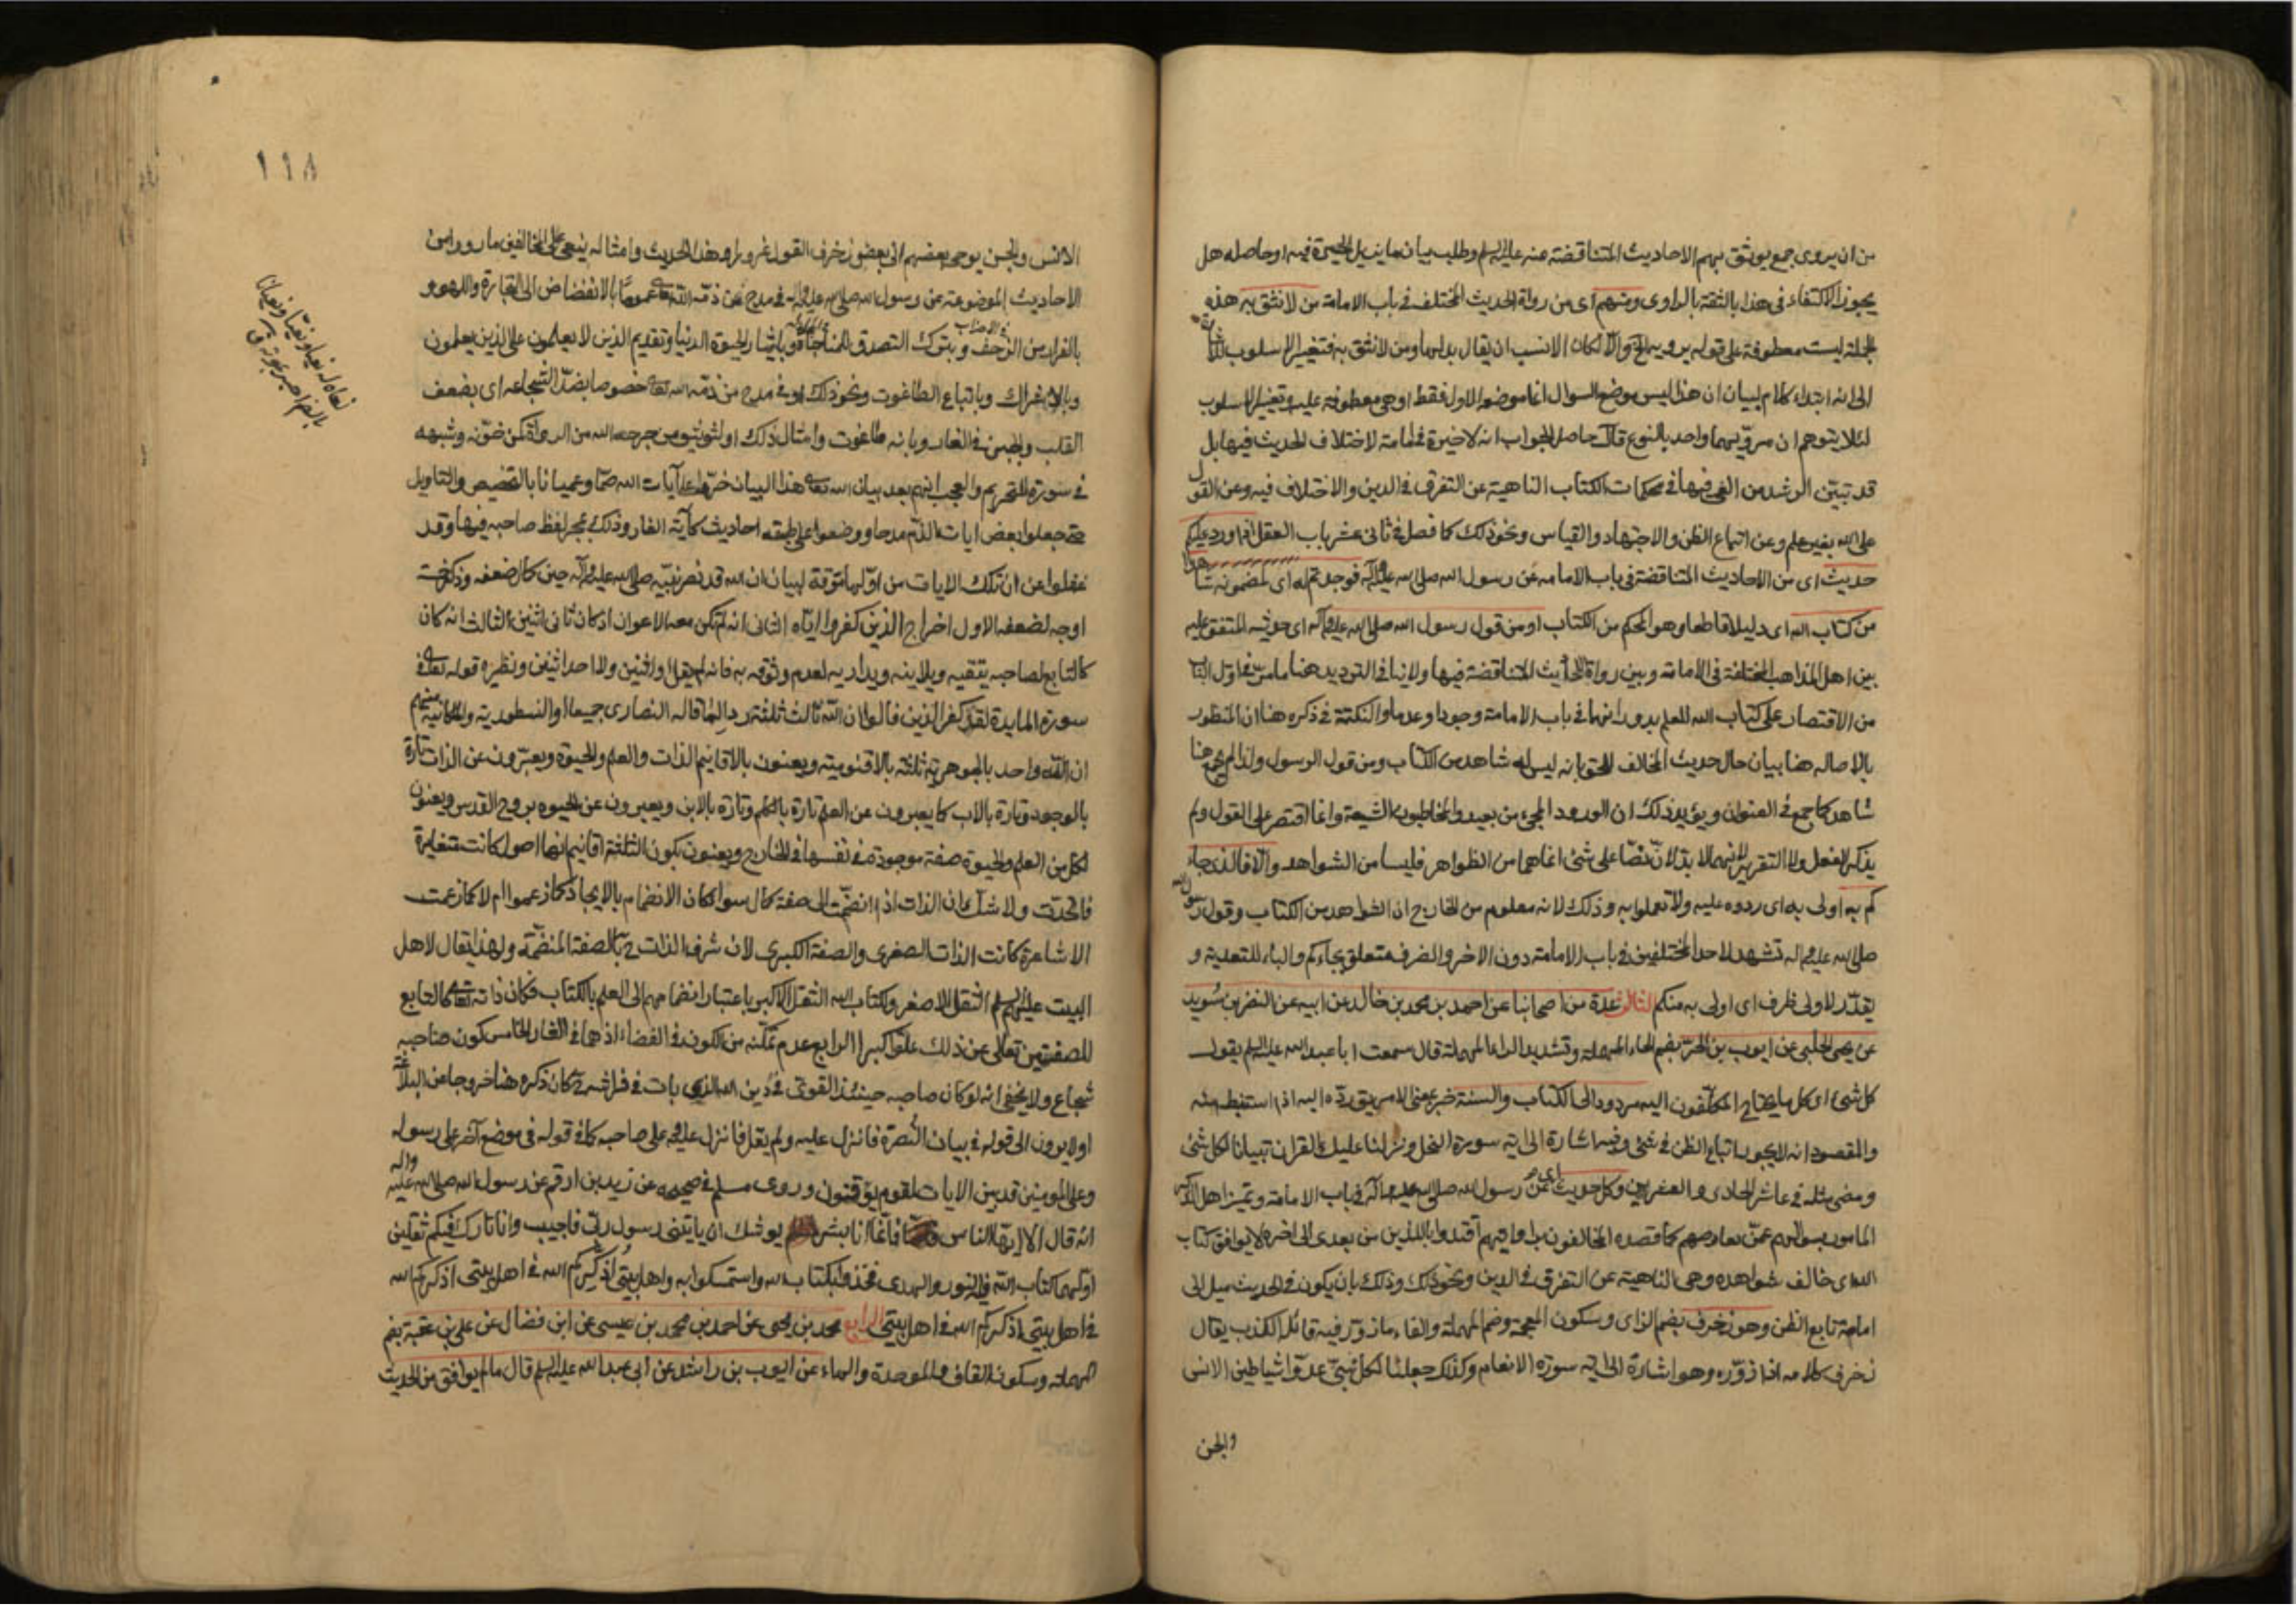 من ان يروى جمع يوثق بهم الاحاديث المتناقضة عنه عليه السلم وطلب بيان ما يزيل الحيرة فيه او حاصله هل
يجوز الاكتفاء فى هذا بالثقة بالراوى ومنهم اى من رواة الحديث المختلف فى باب الامامة من لا نثق به هذه
الجملة ليست معطوفة على قوله يرويه الخ والا لكان الانسب ان يقال بدلها ومن لا نثق به فتغيير الاسلوب
الى انه ابتداء كلام لبيان ان هذا ليس موضع السوال انما موضعه الاول فقط او هى معطوفة عليه وتغيير الاسلوب
لئلا يتوهم ان مرويهما واحد بالنوع قال حاصل الجواب انه لا خيرة فى امامة لاختلاف الحديث فيها بل
قد تبين الرشد من الغى فيها فى محكمات الكتاب الناهية عن التفرق فى الدين والاختلاف فيه وعن القول
على الله بغير علم وعن اتباع الظن والاجتهاد والقياس ونحو ذلك كما فصل فى ثانى عشر باب العقل اذا ورد عليكم
حديث اى من الاحاديث المتناقضة فى باب الامامة عن رسول الله صلى الله عليه وآله فوجدتم له اى لمضمونه شاهدا
من كتاب الله اى دليلا قاطعا وهو المحكم من الكتاب او من قول رسول الله صلى الله عليه وآله اى حديثه المتفق عليه
بين اهل المذاهب المختلفة فى الامامة وبين رواة الاحاديث المتناقضة فيها ولا ينافى الترديد هنا ما مر فى اول الباب
من الاقتصار على كتاب الله للعلم بدورانهما فى باب الامامة وجودا وعدما والنكتة فى ذكره هنا ان المنظور
بالاصالة هنا بيان حال حديث المخالف للحق بانه ليس له شاهد من الكتاب ومن قول الرسول ولذا لم يجمع هنا
شاهد كما جمع فى العنوان ويؤيد ذلك ان الورود المجىء من بعيد والمخاطبون الشيعة وانما اقتصر على القول ولم
يذكر الفعل ولا التقرير لانهما لا يدلان نصا على شئ انما هما من الظواهر فليسا من الشواهد والا فالذى جاء
كم به اولى به اى ردوه عليه ولا تعملوا به وذلك لانه معلوم من الخارج ان الشواهد من الكتاب وقول رسول الله
صلى الله عليه وآله تشهد لاحد المختلفين فى باب الامامة دون الاخر والظرف متعلق بجاءكم والباء للتعدية و
يقدر لاولى ظرف اى اولى به منكم الثالث عدة من اصحابنا عن احمد بن محمد بن خالد عن ابيه عن النضر بن سويد
عن يحيى الحلبى عن ايوب بن الحر بضم الحاء المهملة وتشديد الراء المهملة قال سمعت ابا عبد الله عليه السلم يقول
كل شئ اى كل ما يحتاج المكلفون اليه مردود الى الكتاب والسنة خبر بمعنى الامر يتوقف رده اليه اذا استنبط منه
والمقصود انه لا يجوز اتباع الظن فى شئ وفيه اشارة الى آية سورة النحل ونزلنا عليك القرآن تبيانا لكل شئ
ومضى مثله فى عاشر الحادى والعشرين وكل حديث اى عن رسول الله صلى الله عليه وآله فى باب الامامة وتميز اهل الذكر
المامور بسوالهم عمن يعارضهم كما قصده المخالفون بروايتهم اقتدوا باللذين من بعدى الى اخره لا يوافق كتاب
الله اى خالف شواهده وهى الناهية عن التفرق فى الدين ونحو ذلك وذلك بان يكون فى الحديث ميل الى
امامة تابع الظن وهو زخرف بضم الزاى وسكون المعجمة وضم المهملة والفاء ما زور فيه قائل الكذب يقال
زخرف كلامه اذا زوره وهو اشارة الى آية سورة الانعام وكذلك جعلنا لكل نبى عدوا شياطين الانس
والجن
١١٨
الانس والجن يوحى بعضهم الى بعض زخرف القول غرورا وهذا الحديث وامثاله ينعى على المخالفين ما رووا من
الاحاديث الموضوعة عن رسول الله صلى الله عليه وآله فى مدح من ذمه الله تعالى عموما بالانفضاض الى التجارة واللهو و
بالفرار من الزحف وبترك التصدق للمناجاة وبايثار الحيوة الدنيا وتقديم الذين لا يعلمون على الذين يعلمون
وبالاشراك وباتباع الطاغوت ونحو ذلك او فى مدح من ذمه الله تعالى خصوصا بضد الشجاعة اى بضعف
القلب والجبن فى الغار وبانه طاغوت وامثال ذلك او لتوثيق من جرحه الله من الرواة كمن خونه وشبهه
فى سورة التحريم والعجب انهم بعد بيان الله تعالى هذا البيان خروا على آيات الله صما وعميانا بالتخصيص والتاويل
حتى جعلوا بعض ايات الذم مدحا ووضعوا على طبقه احاديث كآية الغار وذلك بمجرد لفظ صاحبه فيها وقد
غفلوا عن ان تلك الايات من اولها مسوقة لبيان ان الله قد نصر نبيه صلى الله عليه وآله حين كمال ضعفه وذكر خمسة
اوجه لضعفه الاول اخراج الذين كفروا اياه الثانى انه لم تكن معه الاعوان اذ كان ثانى اثنين الثالث انه كان
كالتابع لصاحبه يتقيه ويلاينه ويداريه لعدم وثوقه به فانه لم يقل اول اثنين ولا احد اثنين ونظيره قوله تعالى فى
سورة المايدة لقد كفر الذين قالوا ان الله ثالث ثلثة رد لما قاله النصارى جميعا او النسطورية والملكانية منهم
ان الله واحد بالجوهرية ثلثة بالاقنومية ويعنون بالاقانيم الذات والعلم والحيوة ويعبرون عن الذات تارة
بالوجود وتارة بالاب كما يعبرون عن العلم تارة بالكلم وتارة بالابن ويعبرون عن الحيوة بروح القدس ويعنون
لكل من العلم والحيوة صفة موجودة فى نفسها فى الخارج ويعنون بكون الثلثة اقانيم انها اصول كانت متغايرة
فاتحدت ولا شك ان الذات اذا انضمت الى صفة كمال سواء كان الانضمام بالايجاد كما زعموا ام لا كما زعمت
الاشاعرة كانت الذات الصغرى والصفة الكبرى لان شرف الذات ح بالصفة المنضمة ولهذا يقال لاهل
البيت عليهم السلم الثقل الاصغر ولكتاب الله الثقل الاكبر باعتبار انضمامهم الى العلم بالكتاب فكان ذاته تعالى كالتابع
للصفتين تعالى عن ذلك علوا كبيرا الرابع عدم تمكنه من الكون فى الفضاء اذ هما فى الغار الخامس كون صاحبه
شجاع ولا يخفى انه لو كان صاحبه حينئذ القوى فى دين الله الذى بات فى فراشه لكان ذكره هنا خروجا عن البلاغة
اولا يرون الى قوله فى بيان النصرة فانزل عليه ولم يقل فانزل عليه وعلى صاحبه كما فى قوله فى موضع آخر على رسوله
وعلى المومنين قد بين الايات لقوم يوقنون وروى مسلم فى صحيحه عن زيد بن ارقم عن رسول الله صلى الله عليه وآله
انه قال الا ايها الناس فانما انا بشر يوشك ان ياتينى رسول ربى فاجيب وانا تارك فيكم ثقلين
اولهما كتاب الله فيه النور والهدى فخذوا بكتاب الله واستمسكوا به واهل بيتى اذكركم الله فى اهل بيتى اذكركم الله
فى اهل بيتى اذكركم الله فى اهل بيتى الرابع محمد بن يحيى عن احمد بن محمد بن عيسى عن ابن فضال عن على بن عقبة بضم
المهملة وسكون القاف والموحدة والهاء عن ايوب بن راشد عن ابى عبد الله عليه السلم قال ما لم يوافق من الحديث